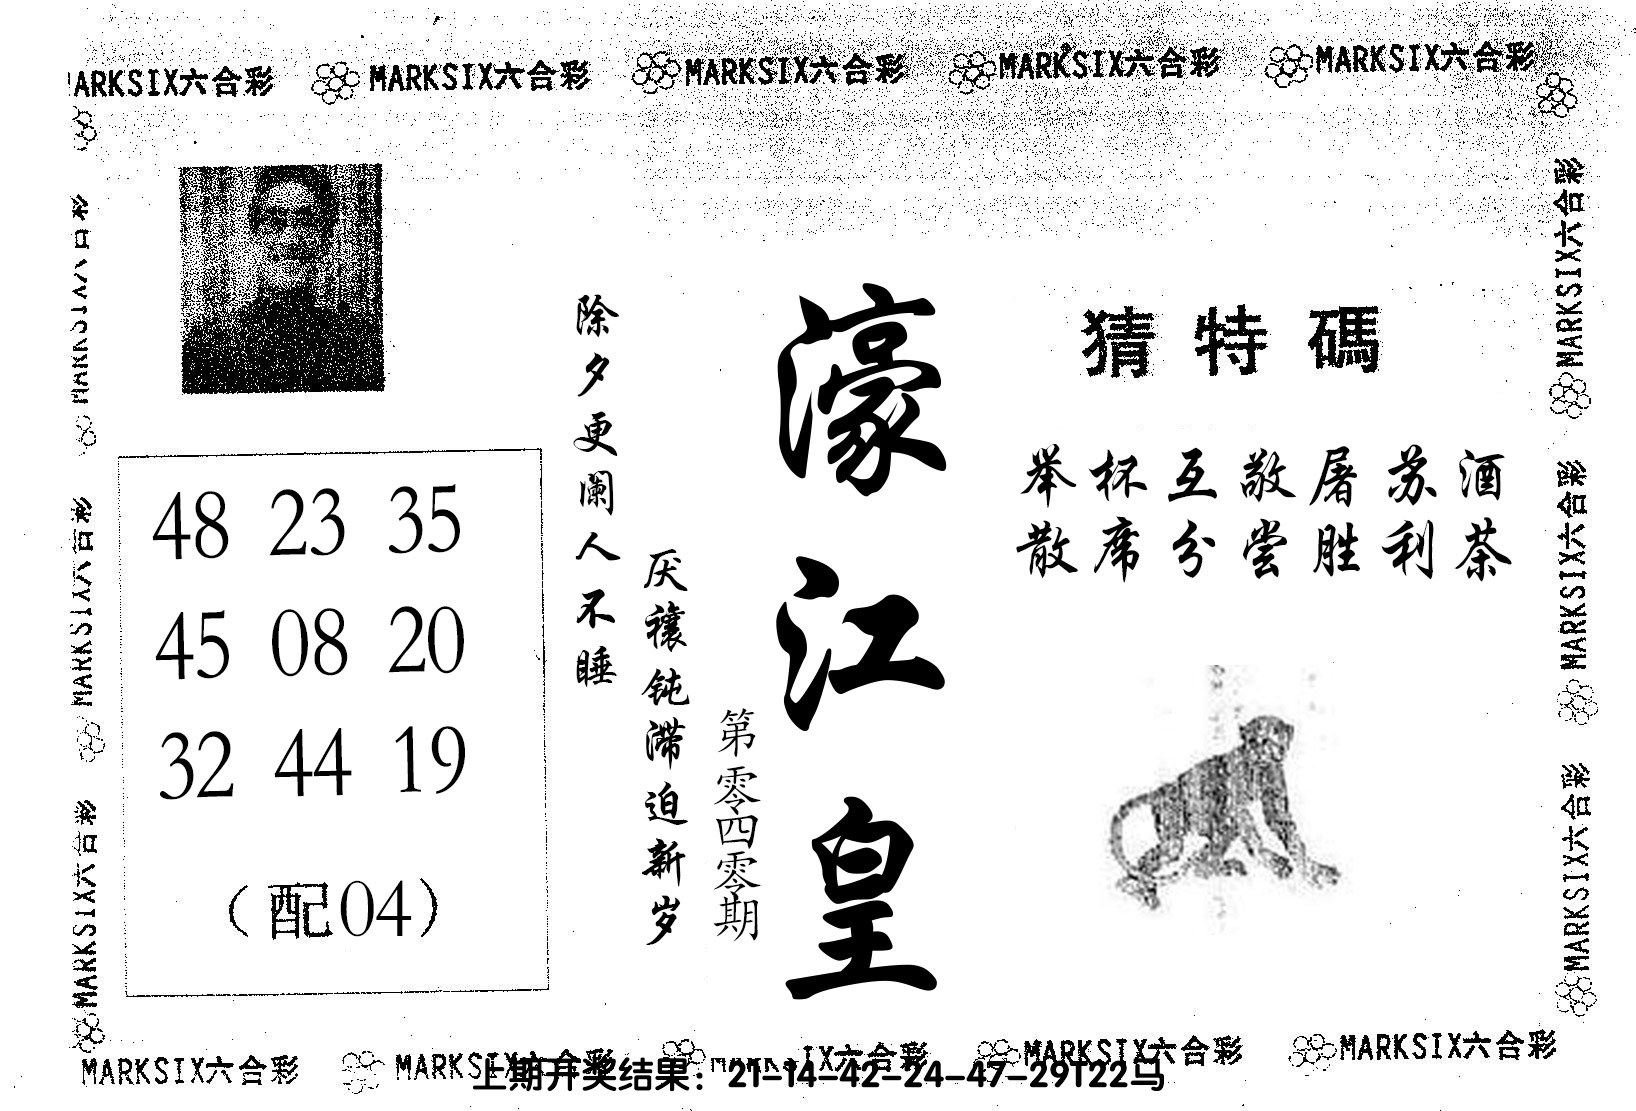 MARKSIX六合彩 MARKSIX六合彩 MARKSIX六合彩 MARKSIX六合彩 MARKSIX六合彩
MARKSIX六合彩
MARKSIX六合彩
MARKSIX六合彩
濠江皇
第零四零期
除夕更阑人不睡
厌禳钝滞迫新岁
猜特碼
举杯互敬屠苏酒
散席分尝胜利茶
48 23 35
45 08 20
32 44 19
（配04）
MARKSIX六合彩
MARKSIX六合彩
MARKSIX六合彩
MARKSIX六合彩 MARKSIX六合彩 IX六合彩 MARKSIX六合彩 MARKSIX六合彩
上期开奖结果：21-14-42-24-47-29T22马